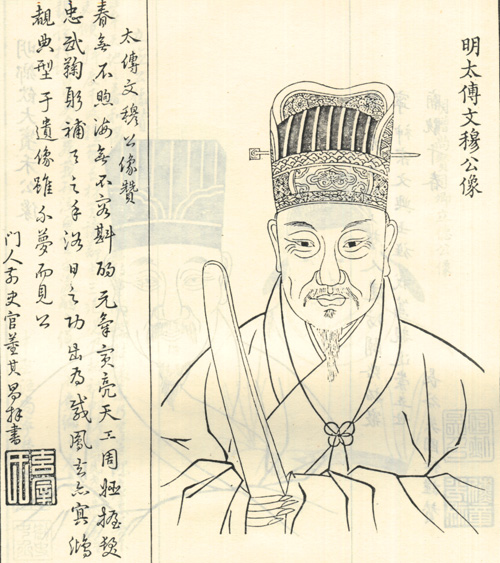 明太傅文穆公像
太傅文穆公像贊
春無不煦海無不容斟酌元氣寅亮天工周姬握髮
忠武鞠躬補天之手浴日之功出為威鳳去亦冥鴻
覩典型于遺像雖不夢而見公
门人前史官董其昌拜書